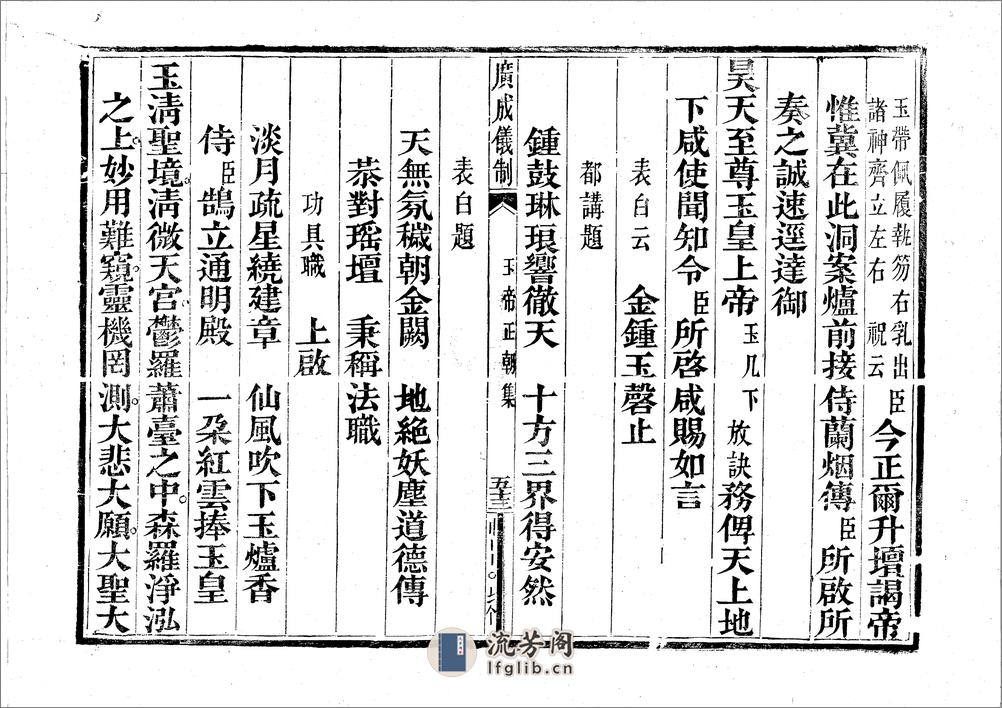 玉帶佩履執笏右乳出
諸神齊立左右 祝云 臣今正爾升壇謁帝
惟冀在此洞案爐前接侍蘭烟傳臣所啟所
奏之誠速逕達御
昊天至尊玉皇上帝玉几下 放訣務俾天上地
下咸使聞知令臣所啓咸賜如言
表白云 金鍾玉磬止
都講題
鍾鼓琳琅響徹天 十方三界得安然
廣成儀制 玉帝正朝集 五十三
表白題
天無氛穢朝金闕 地絶妖塵道德傳
恭對瑶壇 秉稱法職
功具職 上啟
淡月疏星繞建章 仙風吹下玉爐香
侍臣鵠立通明殿 一朶紅雲捧玉皇
玉淸聖境淸微天宫鬱羅蕭臺之中森羅淨泓
之上妙用難窺靈機罔測大悲大願大聖大
流芳阁
lfglib.cn